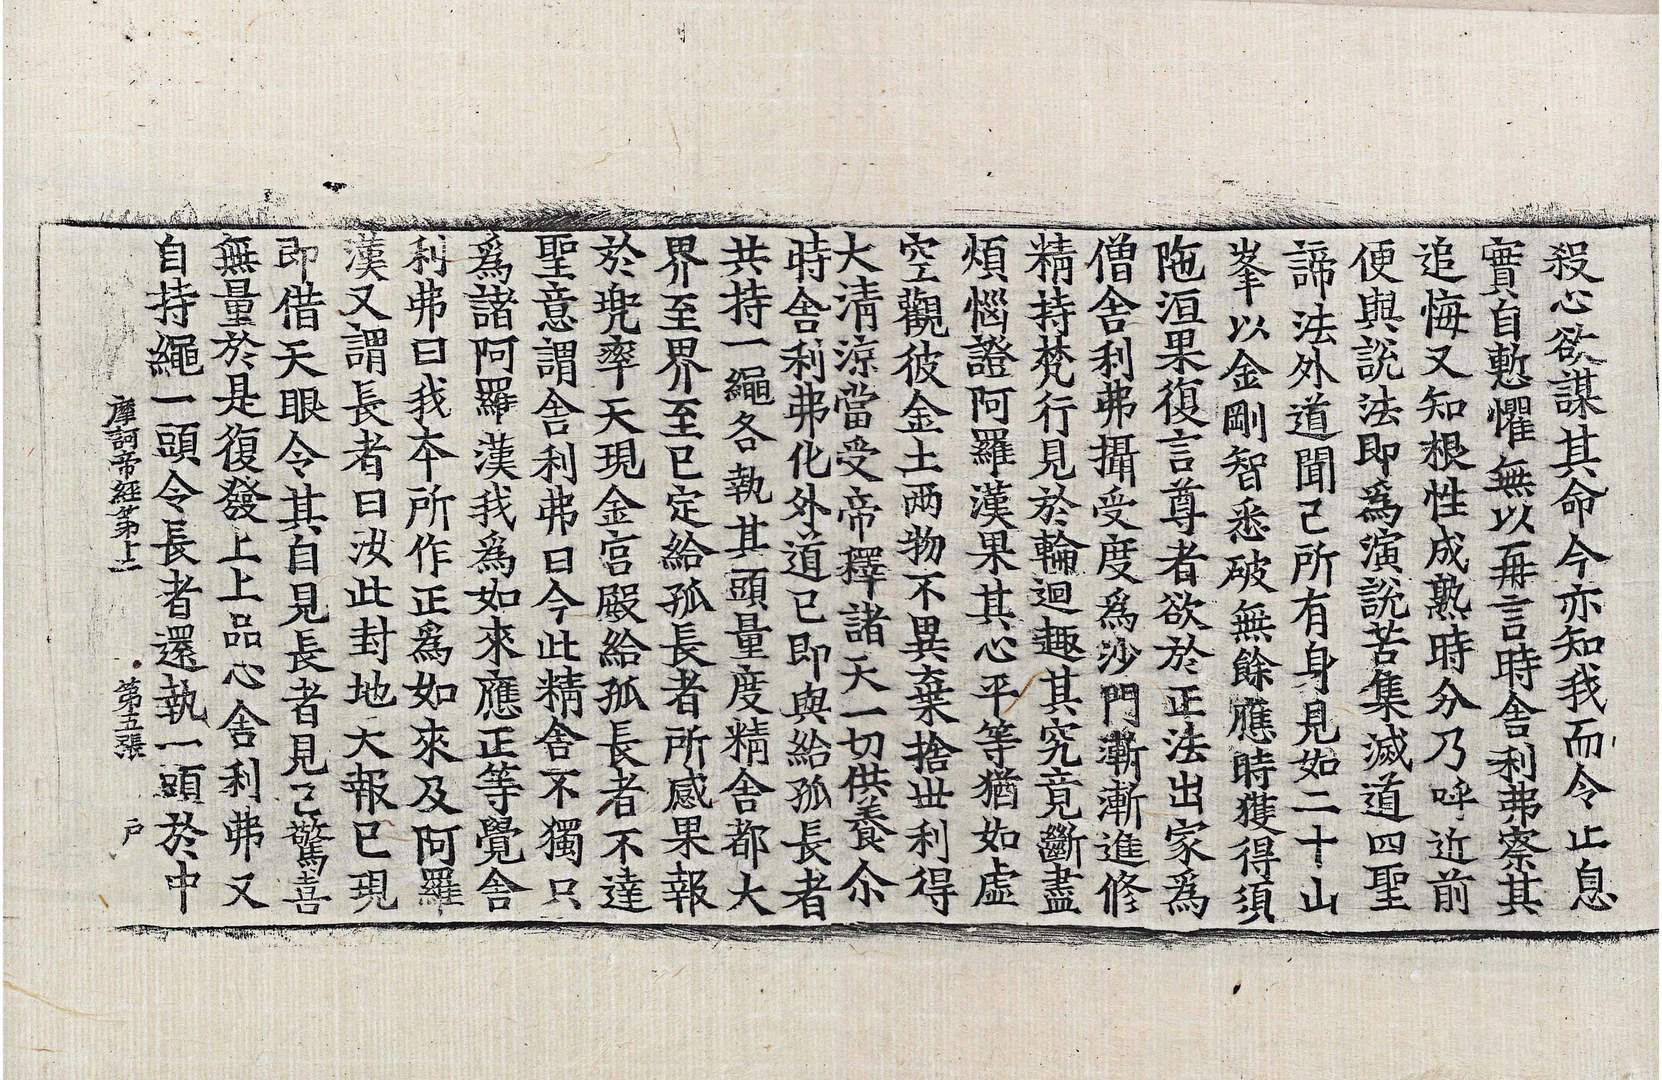 殺心欲謀其命今亦知我而令止息
實自慙懼無以再言時舍利弗察其
追悔又知根性成熟時分乃呼近前
便與說法即爲演說苦集滅道四聖
諦法外道聞己所有身見如二十山
峯以金剛智悉破無餘應時獲得須
陁洹果復言尊者欲於正法出家爲
僧舍利弗攝受度爲沙門漸漸進修
精持梵行見於輪迴趣其究竟斷盡
煩惱證阿羅漢果其心平等猶如虛
空觀彼金土兩物不異棄捨世利得
大淸涼當受帝釋諸天一切供養尒
時舍利弗化外道已即與給孤長者
共持一繩各執其頭量度精舍都大
界至界至已定給孤長者所感果報
於兜率天現金宮殿給孤長者不達
聖意謂舍利弗曰今此精舍不獨只
爲諸阿羅漢我爲如來應正等覺舍
利弗曰我本所作正爲如來及阿羅
漢又謂長者曰汝此封地大報已現
即借天眼令其自見長者見已驚喜
無量於是復發上上品心舍利弗又
自持繩一頭令長者還執一頭於中
摩訶帝經第十一 第五張 户